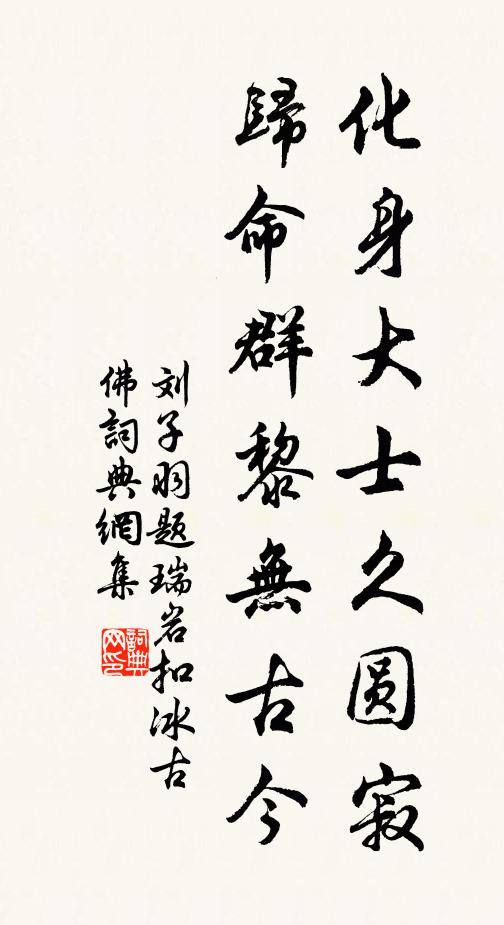 化身大士久圆寂
歸命群黎無古今
刘子羽题瑞岩扣冰古
佛詞典網集
詞典网印